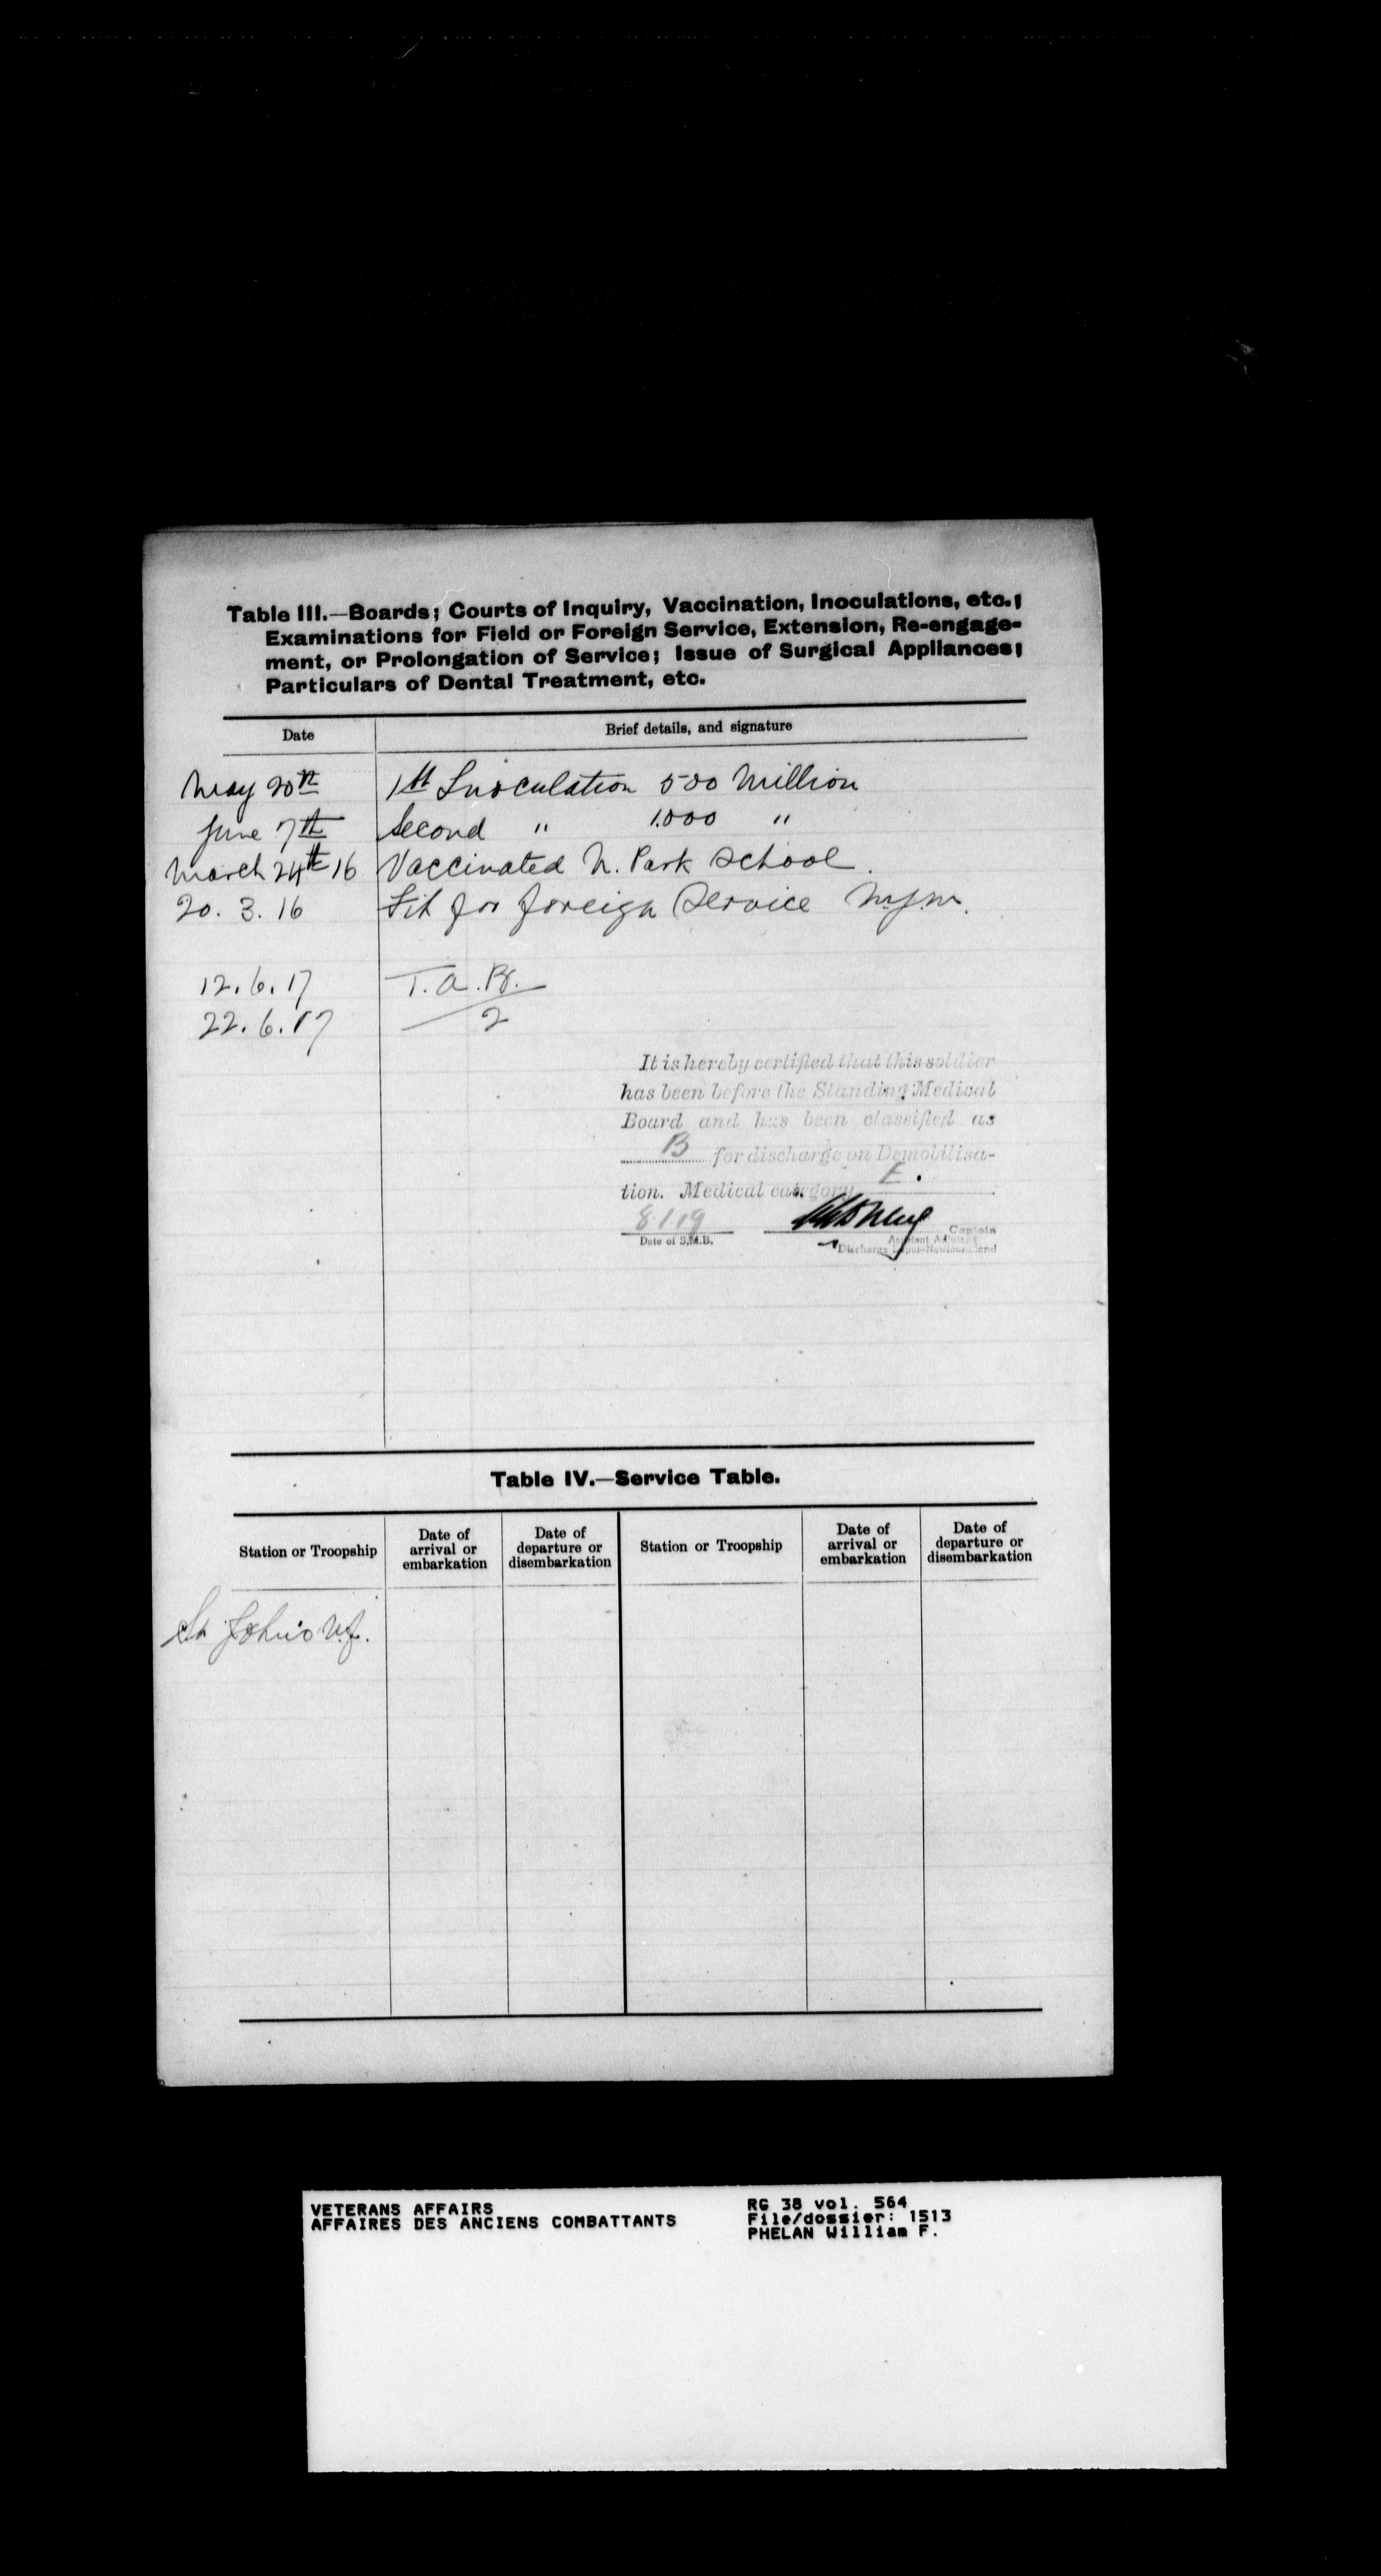 Table III.—Boards; Courts of Inquiry, Vaccination, Inoculations, etc.;
Examinations for Field or Foreign Service, Extension, Re-engage-
ment, or Prolongation of Service; Issue of Surgical Appliances;
Particulars of Dental Treatment, etc.
Date Brief details, and signature
May 20th 1st Inoculation 500 Million
June 7th Second " 1.000 "
March 24th 16 Vaccinated N. Park School.
20. 3. 16 Fit for foreign Service
12. 6. 17 T.A.B.
22. 6. 17 2
It is hereby certified that this soldier
has been before the Standing Medical
Board and has been classified as
B for discharge on Demobilisa-
tion. Medical category E.
8.1.19 Captain
Date of S.M.B. Assistant Adjutant
Discharge Depot-Newfoundland
Table IV.—Service Table.
Station or Troopship Date of arrival or embarkation Date of departure or disembarkation Station or Troopship Date of arrival or embarkation Date of departure or disembarkation
St John's N.f.
VETERANS AFFAIRS RG 38 vol. 564
AFFAIRES DES ANCIENS COMBATTANTS File/dossier: 1513
PHELAN William F.